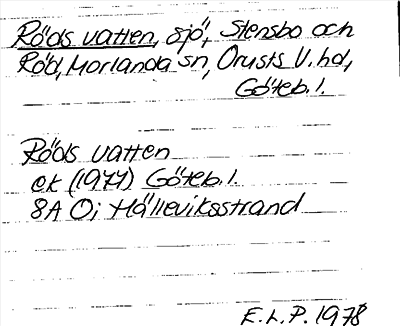 Röds vatten, sjö, Stensbo och
Röd, Morlanda sn, Orusts V. hd,
Göteb. l.
Röds vatten
ek (1977) Göteb. l.
8A Öj Hälleviksstrand
E.L.P. 1978